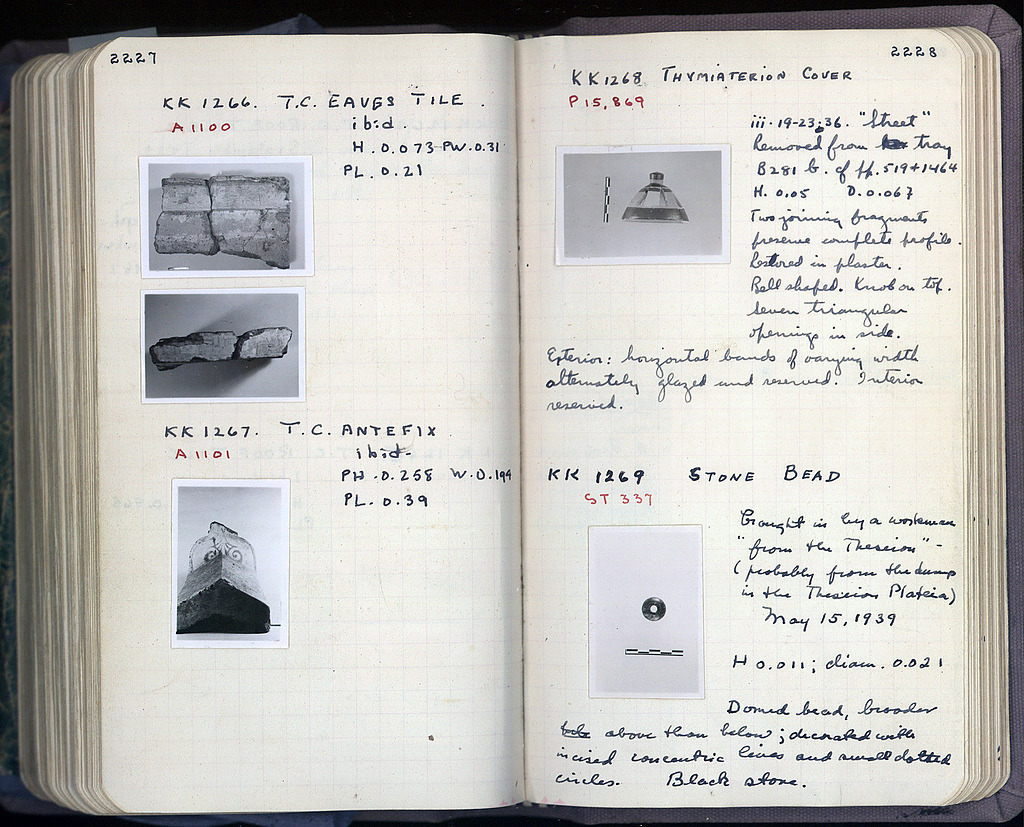 2227
KK 1266. T.C. EAVES TILE.
A 1100
ibid.
H. 0.073 PW. 0.31
PL. 0.21
KK 1267. T.C. ANTEFIX
A 1101
ibid.
PH. 0.258 W. 0.194
PL. 0.39
2228
KK 1268 THYMIATERION COVER
P 15,869
iii. 19-23; 36. "Street"
Removed from tray
B281 b. of pp. 519+1464
H. 0.05 D. 0.067
Two joining fragments
preserve complete profile.
Restored in plaster.
Bell shaped. Knob on top.
Seven triangular
openings in side.
Exterior: horizontal bands of varying width
alternately glazed and reserved. Interior
reserved.
KK 1269 STONE BEAD
ST 337
Brought in by a workman
"from the Theseion" -
(probably from the dump
in the Theseion Plateia)
May 15, 1939
H 0.011; diam. 0.021
Domed bead, broader
above than below; decorated with
incised concentric lines and small dotted
circles. Black stone.